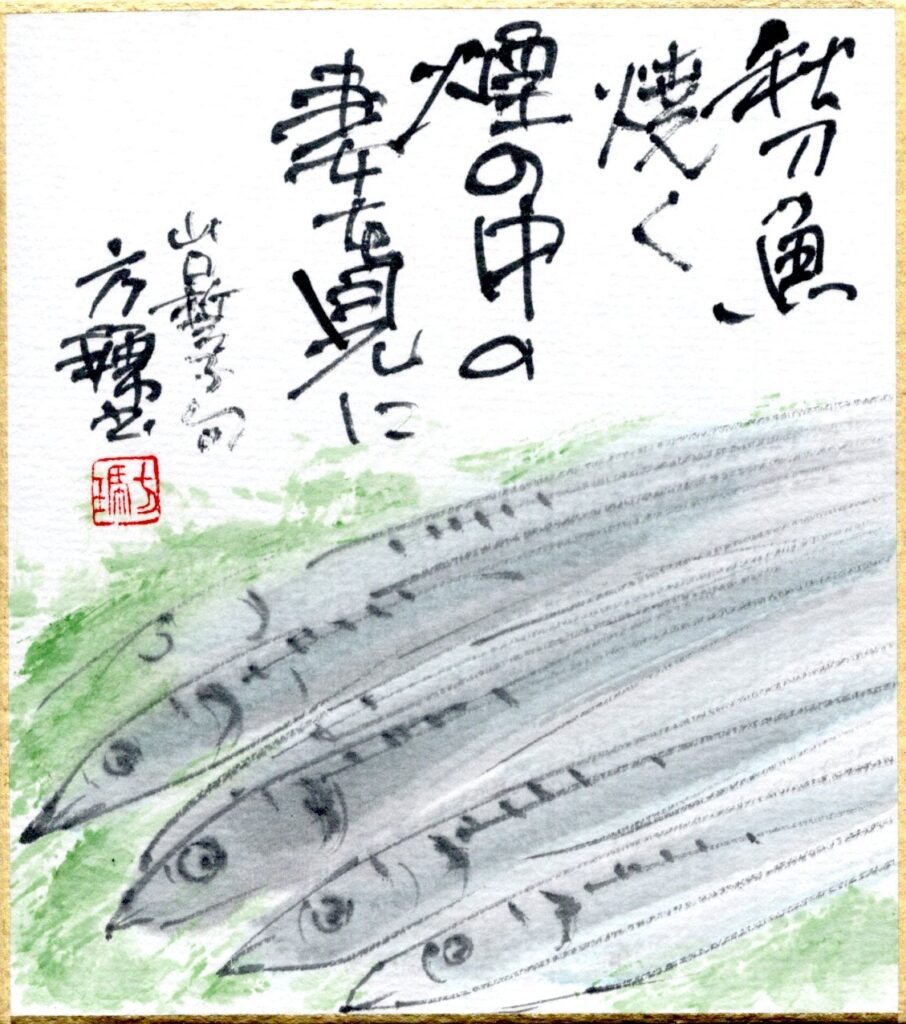 秋刀魚
焼く
煙の中の
妻を見に
山口誓子句